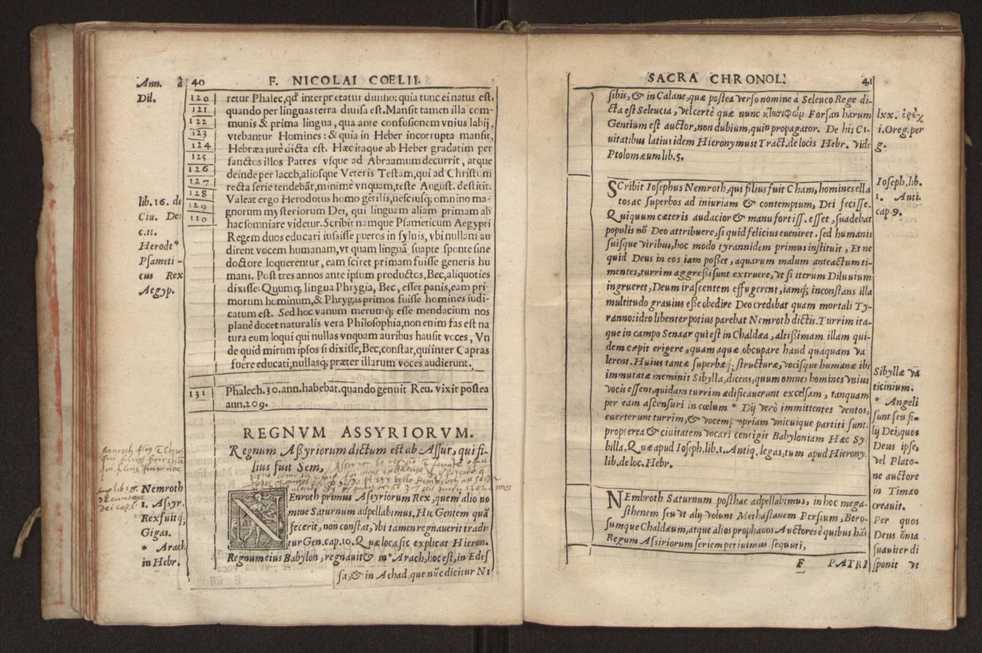 Ann. à
Dil.
40 F. NICOLAI COELII.
120
121
122
123
124
125
126
127
128
129
130
retur Phalec, qđ interpretatur diuisio: quia tunc ei natus est,
quando per linguas terra diuisa est. Mansit tamen illa com
munis & prima lingua, qua ante confusionem vnius labij,
vtebantur Homines: & quia in Heber incorrupta mansit,
Hebræa iure dicta est. Hæc itaque ab Heber gradatim per
sanctos illos Patres vsque ad Abraamum decurrit, atque
deinde per Iacob, aliosque Veteris Testam, qui ad Christum
recta serie tendebāt, minimè vnquam, teste August. destitit.
Valeat ergo Herodotus homo gētilis, nesciusq; omnino ma-
gnorum mysteriorum Dei, qui linguam aliam primam ab
hac somniare videtur. Scribit namque Psameticum Aegypti
Regem duos educari iussisse pueros in syluis, vbi nulloni au
dirent vocem humanam, vt quam lingua suapte sponte sine
doctore loquerentur, eam sciret primam fuisse generis hu
mani. Post tres annos ante ipsum productos, Bec, aliquoties
dixisse: Quumq; lingua Phrygia, Bec, esset panis, eam pri-
morum hominum, & Phrygas primos fuisse homines iudi-
catum est. Sed hoc vanum merumq; esse mendacium nos
planè docet naturalis vera Philosophia, non enim fas est na
tura eum loqui qui nullas vnquam auribus hausit voces, Vn
de quid mirum ipsos si dixisse, Bec, constat, qui inter Capras
fuere educati, nullasq; præter illarum voces audierunt.
lib. 16. de
Ciu. Dei
c. 11.
Herode*
Psameti-
cus Rex
Aegyp.
131 Phalech. 30. ann. habebat. quando genuit Reu. vixit postea
ann. 209.
REGNVM ASSYRIORVM.
Regnum Assyriorum dictum est ab Assur, qui fi-
lius fuit Sem,
NEnroth primus Assyriorum Rex, quem alio no
mine Saturnum adpellabimus. Hic Gentem quā
fecerit, non constat, vbi tamen regnauerit tradi
tur Gen. cap. 10. Quæ loca sic explicat Hieron.
Regnum eius Babylon, regnauit & in* Arach, hoc est, in Edes
sa, & in Achad, que nūc dicitur Ni
Nemroth
1. Assyr.
Rex fuit q;
Gigas.
* Arach
in Hebr.
SACRA CHRONOL. 41
sibis, & in Calane, quæ postea verso nomine à Seleuco Rege di-
cta est Seleucia, vel certè quæ nunc Forsan harum
Gentium est auctor, non dubium, quin propagator. De his Ci-
uitatibus latius idem Hieronymus Tract, de locis Hebr. vide
Ptolomæum lib. 5.
lxx.
i. Oreg. per
g.
SCribit Iosephus Nemroth, qui filius fuit Cham, homines ella
tos ac superbos ad iniuriam & contemptum, Dei fecisse.
Qui quum cæteris audacior & manu fortiss. esset, suadebat
populis nō Deo attribuere, si quid felicius eueniret. sed humanis
suisque viribus, hoc modo tyrannidem primus instituit, Et ne
quid Deus in eos iam posset, aquarum malum anteactum ti-
mentes, turrim aggressi sunt extruere, vt si iterum Diluuium
ingrueret, Deum irascentem effugerent, iamq; inconstans illa
multitudo grauius esse obedire Deo credibat quam mortali Ty-
ranno: ideo libenter potius parebat Nemroth dictis. Turrim ita-
que in campo Senaar qui est in Chaldæa, altissimam illam qui-
dem cæpit erigere, quam aquæ obcupare haud quaquam va
lerent. Huius tantæ superbæq; structuræ, vocisque humanæ ibi
immutatæ meminit Sibylla, dicens, quum omnes homines vnius
vocis essent, quidam turrim ædificauerunt excelsam, tanquam
per eam ascensuri in cœlum * Dij verò immittentes ventos,
euerterunt turrim, & vocem propriam vnicuique partiti sunt.
propterea & ciuitatem vocari contigit Babyloniam Hæc Sy
billa, Quæ apud Ioseph. lib. 1. Antiq. legas, tum apud Hierony.
lib. de loc. Hebr.
Ioseph. lib.
1. Anti.
cap. 9.
Sibyllæ va
ticinium.
* Angeli
sunt seu fi-
lij Dei, quos
Deus ipse,
vel Plato-
ne auctore
in Timæo
creauit.
Per quos
Deus oīnia
suauiter di
sponit vt
NEmbroth Saturnum posthac adpellabimus, in hoc mega-
sthenem seu vt alij volunt Methastanem Persium, Bero-
sumque Chaldæum, atque alios prophanos Auctores è quibus hāc
Regum Assiriorum seriem petiuimus sequuti,
F PATRI